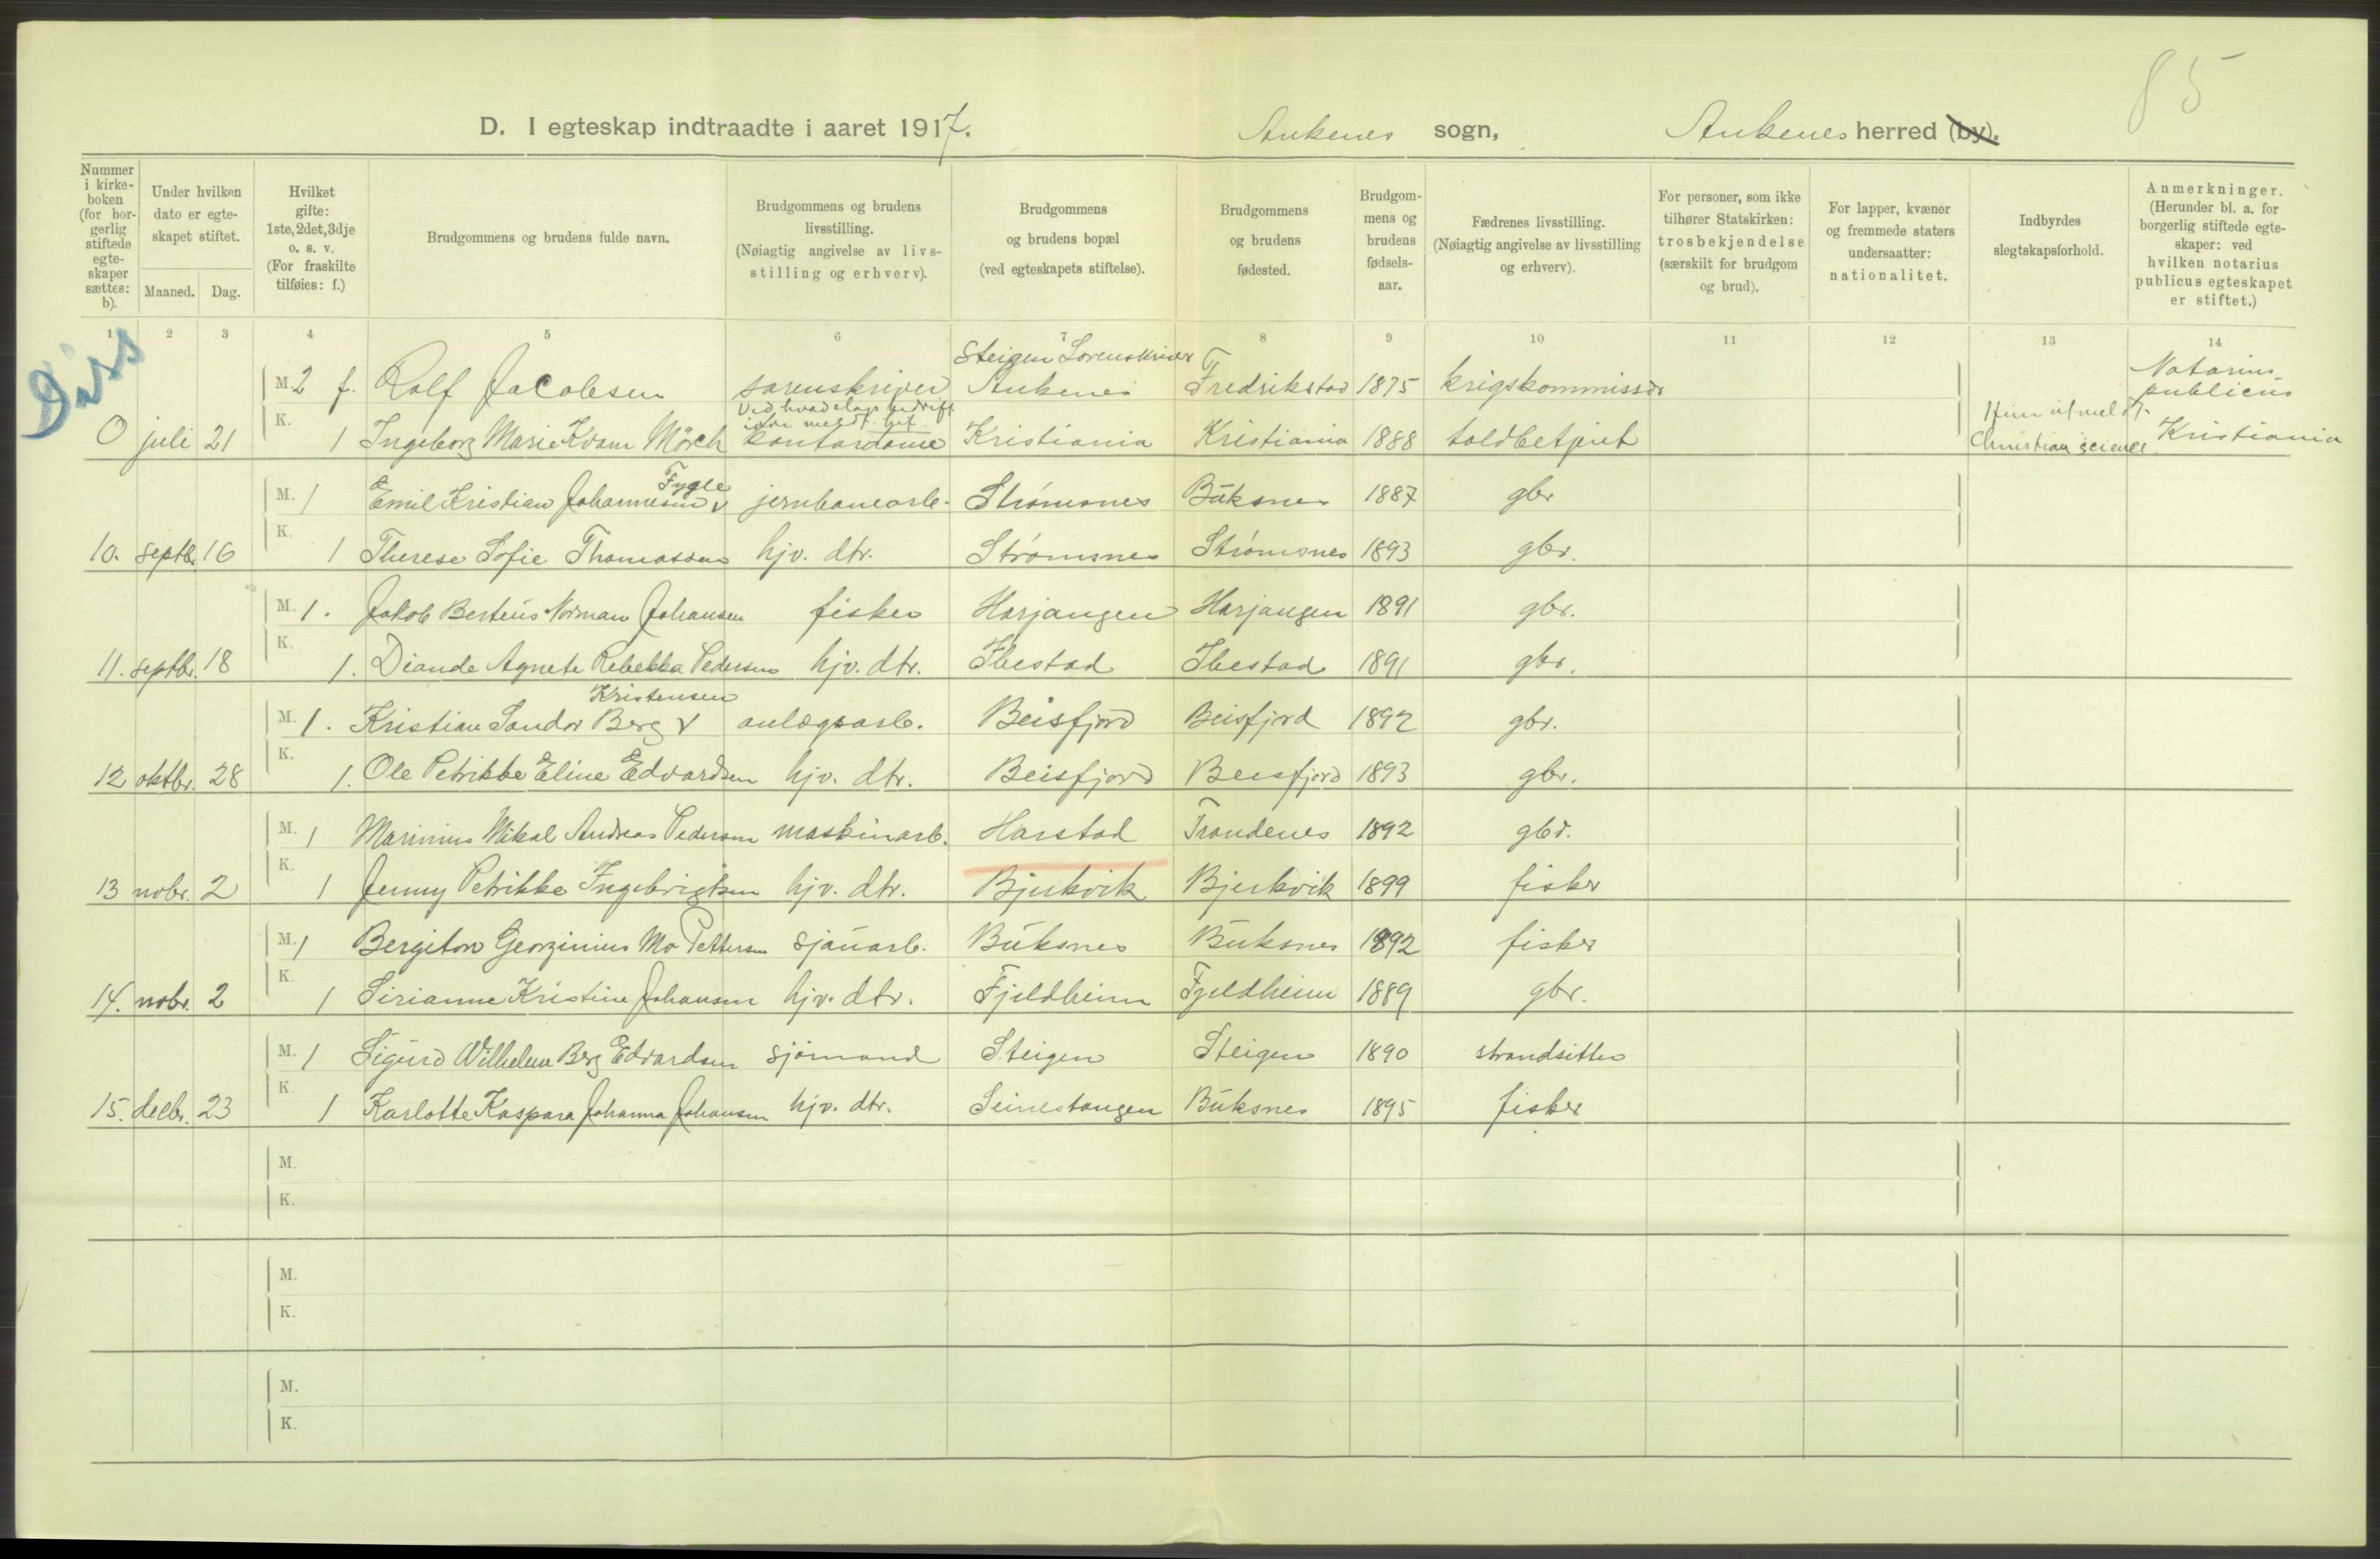 85
D. I egteskap indtraadte i aaret 1917. Ankenes sogn, Ankenes herred (by).
Nummer i kirkeboken (for borgerlig stiftede egteskaper sættes: b).
Under hvilken dato er egteskapet stiftet.
Maaned. Dag.
Hvilket gifte: 1ste, 2det, 3dje o. s. v. (For fraskilte tilføies: f.)
Brudgommens og brudens fulde navn.
Brudgommens og brudens livsstilling. (Nøiagtig angivelse av livsstilling og erhverv).
Brudgommens og brudens bopæl (ved egteskapets stiftelse).
Brudgommens og brudens fødested.
Brudgommens og brudens fødselsaar.
Fædrenes livsstilling. (Nøiagtig angivelse av livsstilling og erhverv).
For personer, som ikke tilhører Statskirken: trosbekjendelse (særskilt for brudgom og brud).
For lapper, kvæner og fremmede staters undersaatter: nationalitet.
Indbyrdes slegtskapsforhold.
Anmerkninger. (Herunder bl. a. for borgerlig stiftede egteskaper: ved hvilken notarius publicus egteskapet er stiftet.)
1 2 3 4 5 6 7 8 9 10 11 12 13 14
Diss
Steigen Sorenskriver
M. 2 f. Rolf Jacobsen sorenskriver Ankenes Fredrikstad 1875 krigskommissær Notarius publicus
Ved hvadslags bedrift ikke meldt
0 juli 21 K. 1 Ingeborg Marie Kvam Mörch kontordame Kristiania Kristiania 1888 toldbetjent Hun utmeldt Christian science Kristiania
Fygle
M. 1 Emil Kristian Johannesen v jernbanearb. Strømsnes Buksnes 1887 gbr
10. septb. 16 K. 1 Therese Sofie Thomassen hjv. dtr. Strømsnes Strømsnes 1893 gbr.
M. 1. Jakob Berteus Norman Johansen fisker Harjangen Harjangen 1891 gbr.
11. septbr. 18 K. 1. Diande Agnete Rebekka Pedersen hjv. dtr. Ibestad Ibestad 1891 gbr.
Kristensen
M. 1. Kristian Sandor Berg v anlægsarb. Beisfjord Beisfjord 1892 gbr.
12 oktbr. 28 K. 1. Ole Petrikke Eline Edvardsen hjv. dtr. Beisfjord Beisfjord 1893 gbr.
M. 1 Marinius Mikal Andreas Pedersen maskinarb. Harstad Trondenes 1892 gbr.
13 nobr. 2 K. 1 Jenny Petrikke Ingebrigtsen hjv. dtr. Bjerkvik Bjerkvik 1899 fisker
M. 1 Bergiton Georginius Mo Pettersen sjauarb. Buksnes Buksnes 1892 fisker
14. nobr. 2 K. 1 Sirianne Kristine Johansen hjv. dtr. Fjeldheim Fjeldheim 1889 gbr.
M. 1 Sigurd Wilhelm Berg Edvardsen sjömand Steigen Steigen 1890 strandsitter
15. decbr. 23 K. 1 Karlotte Kaspara Johanna Johansen hjv. dtr. Seinestangen Buksnes 1895 fisker
M.
K.
M.
K.
M.
K.